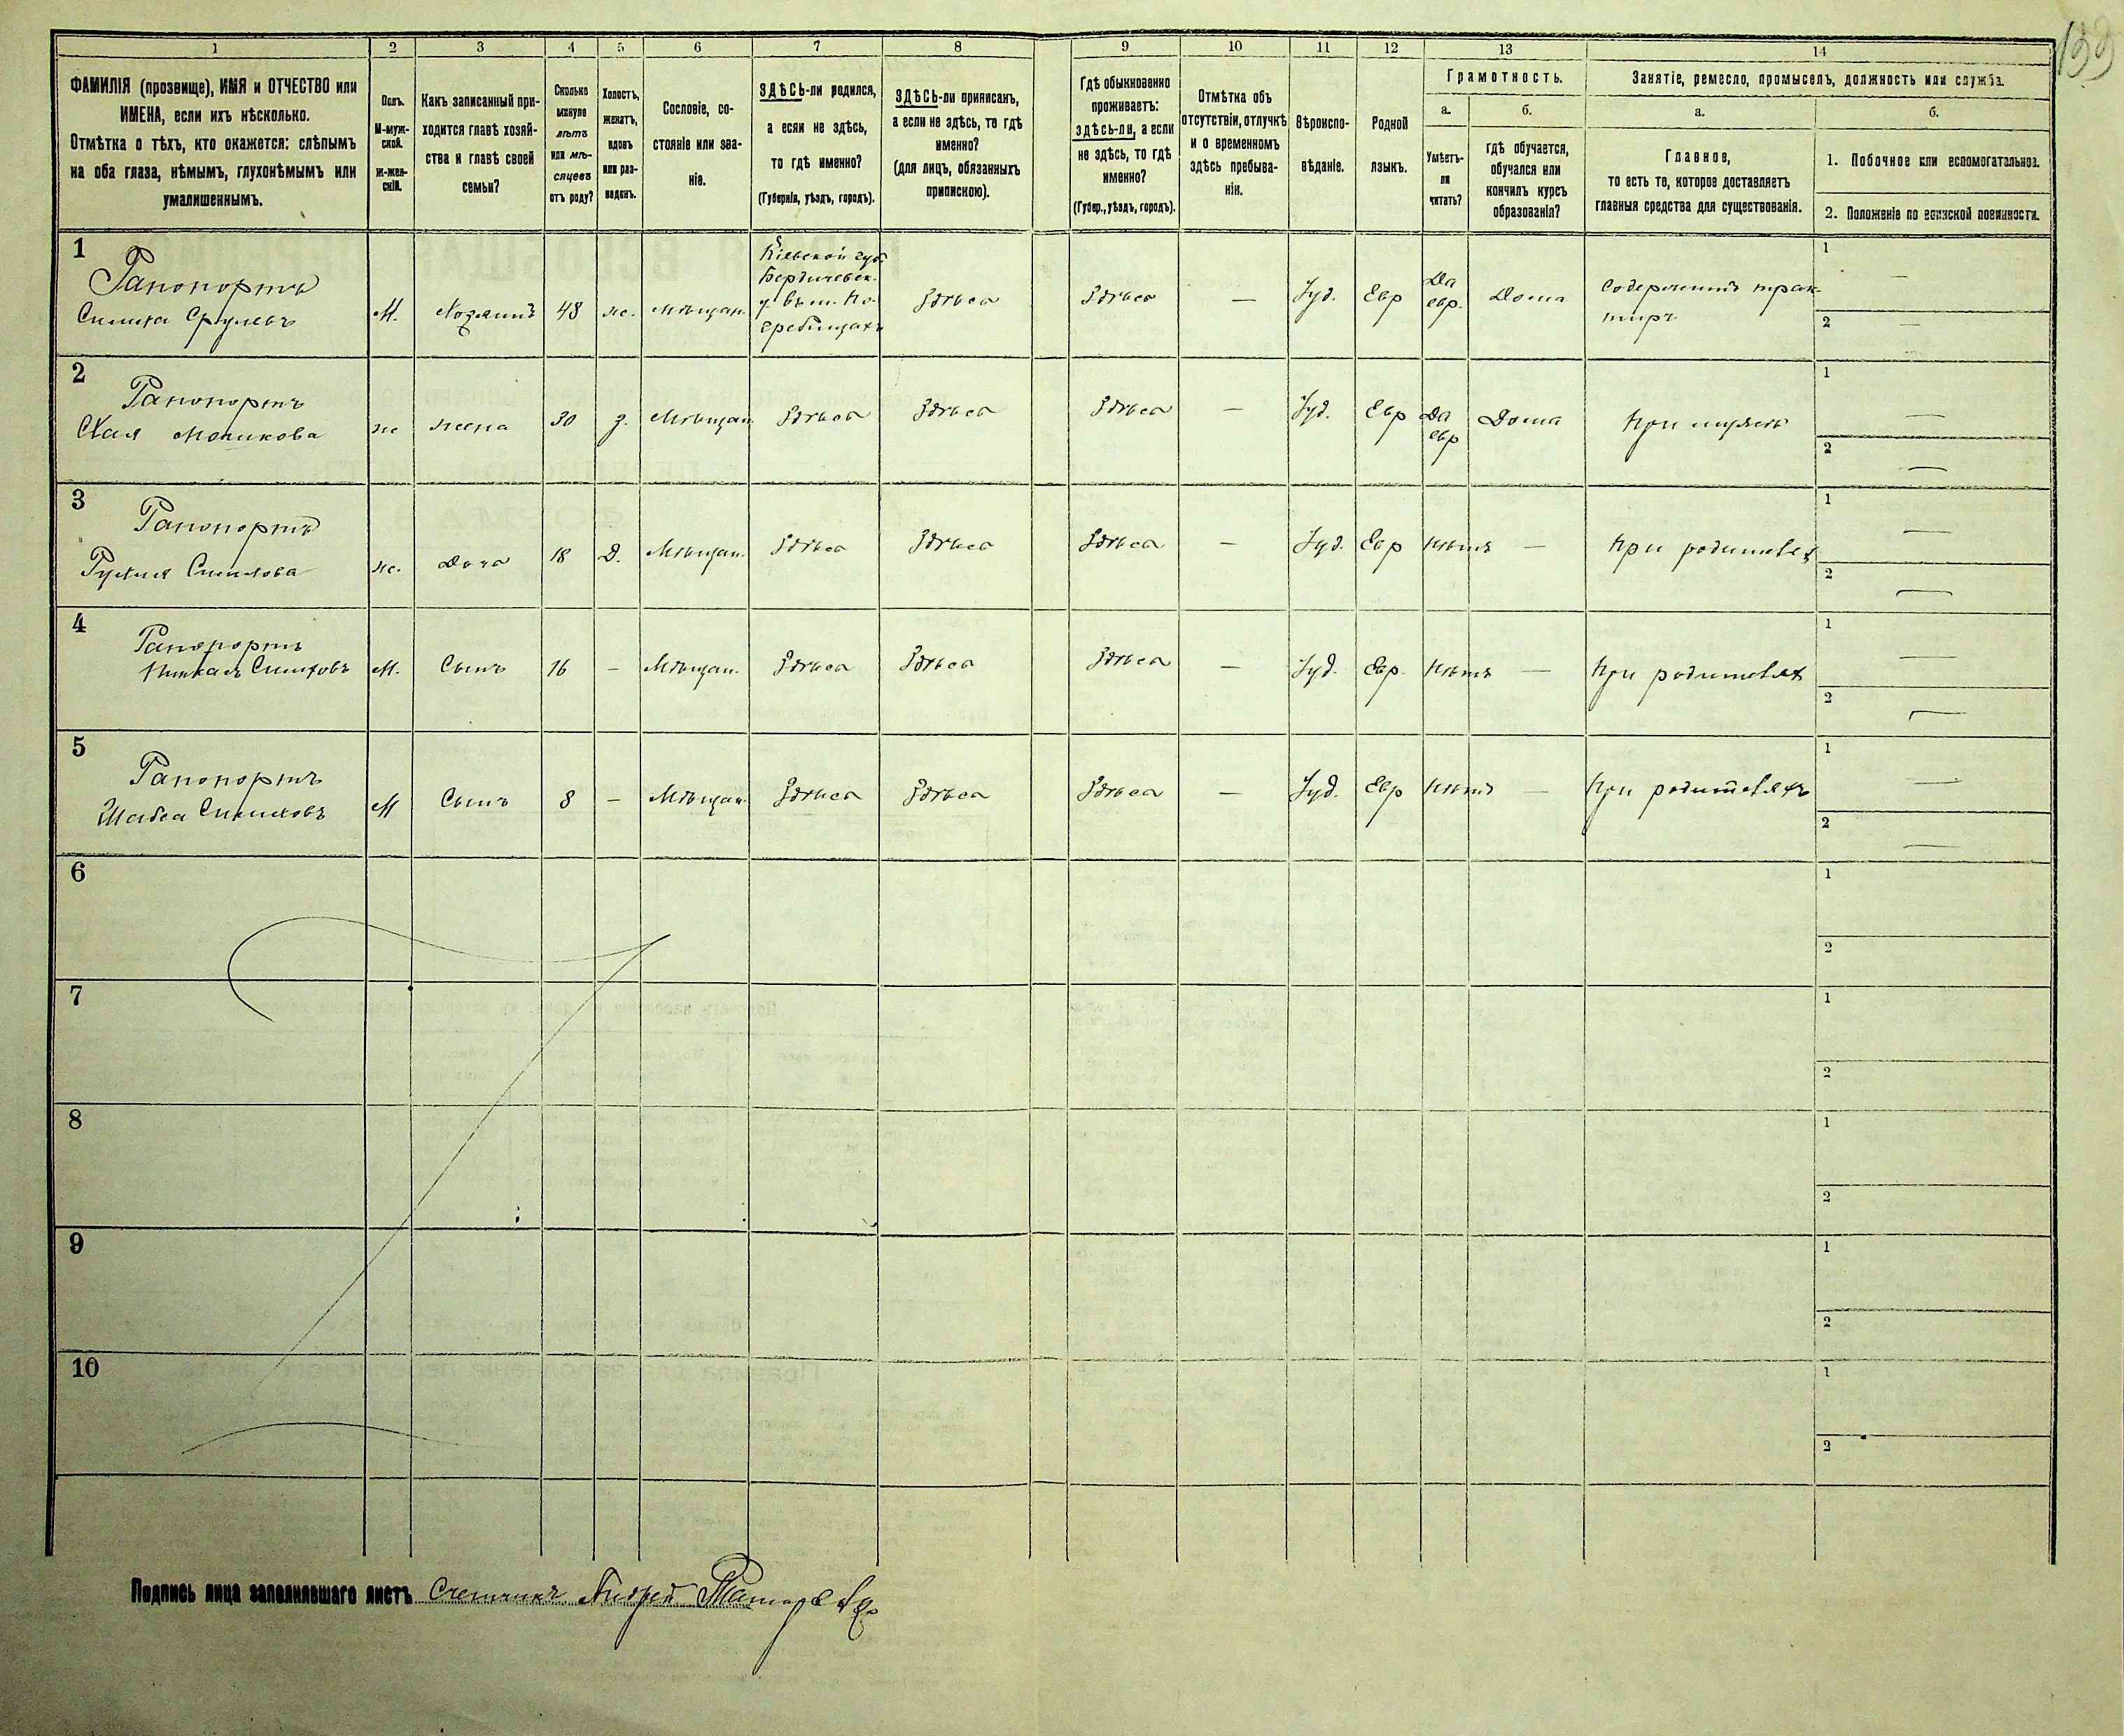 139
1 2 3 4 5 6 7 8 9 10 11 12 13 14
ФАМИЛІЯ (прозвище), ИМЯ и ОТЧЕСТВО или
ИМЕНА, если ихъ нѣсколько.
Отмѣтка о тѣхъ, кто окажется: слѣпымъ
на оба глаза, нѣмымъ, глухонѣмымъ или
умалишеннымъ.
Полъ.
М-муж-
ской.
Ж-жен-
скій.
Какъ записанный при-
ходится главѣ хозяй-
ства и главѣ своей
семьи?
Сколько
минуло
лѣтъ
или мѣ-
сяцевъ
отъ роду?
Холостъ,
женатъ,
вдовъ
или раз-
веденъ.
Сословіе, со-
стояніе или зва-
ніе.
ЗДѢСЬ-ли родился,
а если не здѣсь,
то гдѣ именно?
(Губернія, уѣздъ, городъ).
ЗДѢСЬ-ли приписанъ,
а если не здѣсь, то гдѣ
именно?
(для лицъ, обязанныхъ
припискою).
Гдѣ обыкновенно
проживаетъ:
здѣсь-ли, а если
не здѣсь, то гдѣ
именно?
(Губер., уѣздъ, городъ).
Отмѣтка объ
отсутствіи, отлучкѣ
и о временномъ
здѣсь пребыва-
ніи.
Вѣроиспо-
вѣданіе.
Родной
языкъ.
Грамотность.
а.
Умѣетъ-
ли
читать?
б.
гдѣ обучается,
обучался или
кончилъ курсъ
образованія?
Занятіе, ремесло, промыселъ, должность или служба.
а.
Главное,
то есть то, которое доставляетъ
главныя средства для существованія.
б.
1. Побочное или вспомогательное.
2. Положеніе по воинской повинности.
1
Рапопортъ
Симха Срулевъ
М.
Хозяинъ
48
ж.
Мѣщан.
Кіевской губ.
Бердичевск.
у. въ м. По-
гребищахъ
Здѣсь
Здѣсь
—
Іуд.
Евр
Да
евр.
Дома
Содержитъ трак-
тиръ
1 —
2 —
2
Рапопортъ
Хая
ж
жена
30
з.
Мѣщан.
Здѣсь
Здѣсь
Здѣсь
—
Іуд.
Евр
Да
евр
Дома
При мужѣ
1 —
2 —
3
Рапопортъ
Рухля Симхова
ж.
Дочь
18
Д.
Мѣщан.
Здѣсь
Здѣсь
Здѣсь
—
Іуд.
Евр
Нѣтъ
—
При родителях
1 —
2 —
4
Рапопортъ
Симховъ
М.
Сынъ
16
—
Мѣщан.
Здѣсь
Здѣсь
Здѣсь
—
Іуд.
Евр.
Нѣтъ
—
При родителях
1 —
2 —
5
Рапопортъ
Симховъ
М
Сынъ
8
—
Мѣщан.
Здѣсь
Здѣсь
Здѣсь
—
Іуд.
Евр
Нѣтъ
—
При родителяхъ
1 —
2 —
6
1
2
7
1
2
8
1
2
9
1
2
10
1
2
Подпись лица заполнявшаго листъ Счетчикъ Андрей